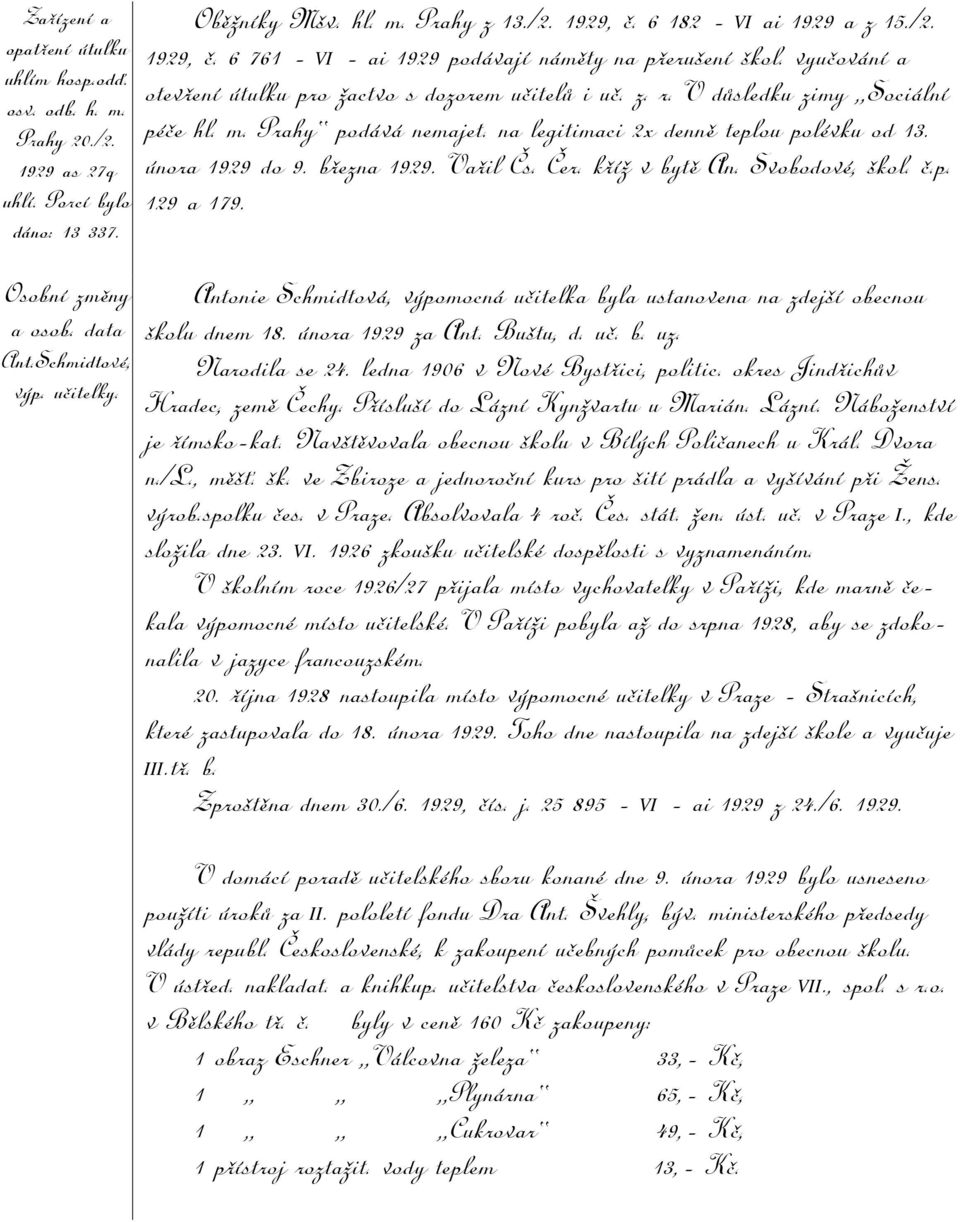 Zařízení a
opatření útulku
uhlím hosp.odd.
osv. odb. h. m.
Prahy 20./2.
1929 as 27q
uhlí. Porcí bylo
dáno: 13 337.
Oběžníky Mšv. hl. m. Prahy z 13./2. 1929, č. 6 182 - VI ai 1929 a z 15./2.
1929, č. 6 761 - VI - ai 1929 podávají náměty na přerušení škol. vyučování a
otevření útulku pro žactvo s dozorem učitelů i uč. z. r. V důsledku zimy „Sociální
péče hl. m. Prahy“ podává nemajet. na legitimaci 2x denně teplou polévku od 13.
února 1929 do 9. března 1929. Vařil Čs. Čer. kříž v bytě An. Svobodové, škol. č.p.
129 a 179.
Osobní změny
a osob. data
Ant.Schmidtové,
výp. učitelky.
Antonie Schmidtová, výpomocná učitelka byla ustanovena na zdejší obecnou
školu dnem 18. února 1929 za Ant. Buštu, d. uč. b. uz.
Narodila se 24. ledna 1906 v Nové Bystřici, politic. okres Jindřichův
Hradec, země Čechy. Přísluší do Lázní Kynžvartu u Marián. Lázní. Náboženství
je římsko-kat. Navštěvovala obecnou školu v Bílých Poličanech u Král. Dvora
n./L., měšť. šk. ve Zbiroze a jednoroční kurs pro šití prádla a vyšívání při Žens.
výrob.spolku čes. v Praze. Absolvovala 4 roč. Čes. stát. žen. úst. uč. v Praze I., kde
složila dne 23. VI. 1926 zkoušku učitelské dospělosti s vyznamenáním.
V školním roce 1926/27 přijala místo vychovatelky v Paříži, kde marně če-
kala výpomocné místo učitelské. V Paříži pobyla až do srpna 1928, aby se zdoko-
nalila v jazyce francouzském.
20. října 1928 nastoupila místo výpomocné učitelky v Praze - Strašnicích,
které zastupovala do 18. února 1929. Toho dne nastoupila na zdejší škole a vyučuje
III.tř. b.
Zproštěna dnem 30./6. 1929, čís. j. 25 895 - VI - ai 1929 z 24./6. 1929.
V domácí poradě učitelského sboru konané dne 9. února 1929 bylo usneseno
použíti úroků za II. pololetí fondu Dra Ant. Švehly, býv. ministerského předsedy
vlády republ. Československé, k zakoupení učebných pomůcek pro obecnou školu.
V ústřed. nakladat. a knihkup. učitelstva československého v Praze VII., spol. s r.o.
v Bělského tř. č. byly v ceně 160 Kč zakoupeny:
1 obraz Eschner „Válcovna železa“ 33,- Kč,
1 „ „ „Plynárna“ 65,- Kč,
1 „ „ „Cukrovar“ 49,- Kč,
1 přístroj roztažit. vody teplem 13,- Kč.